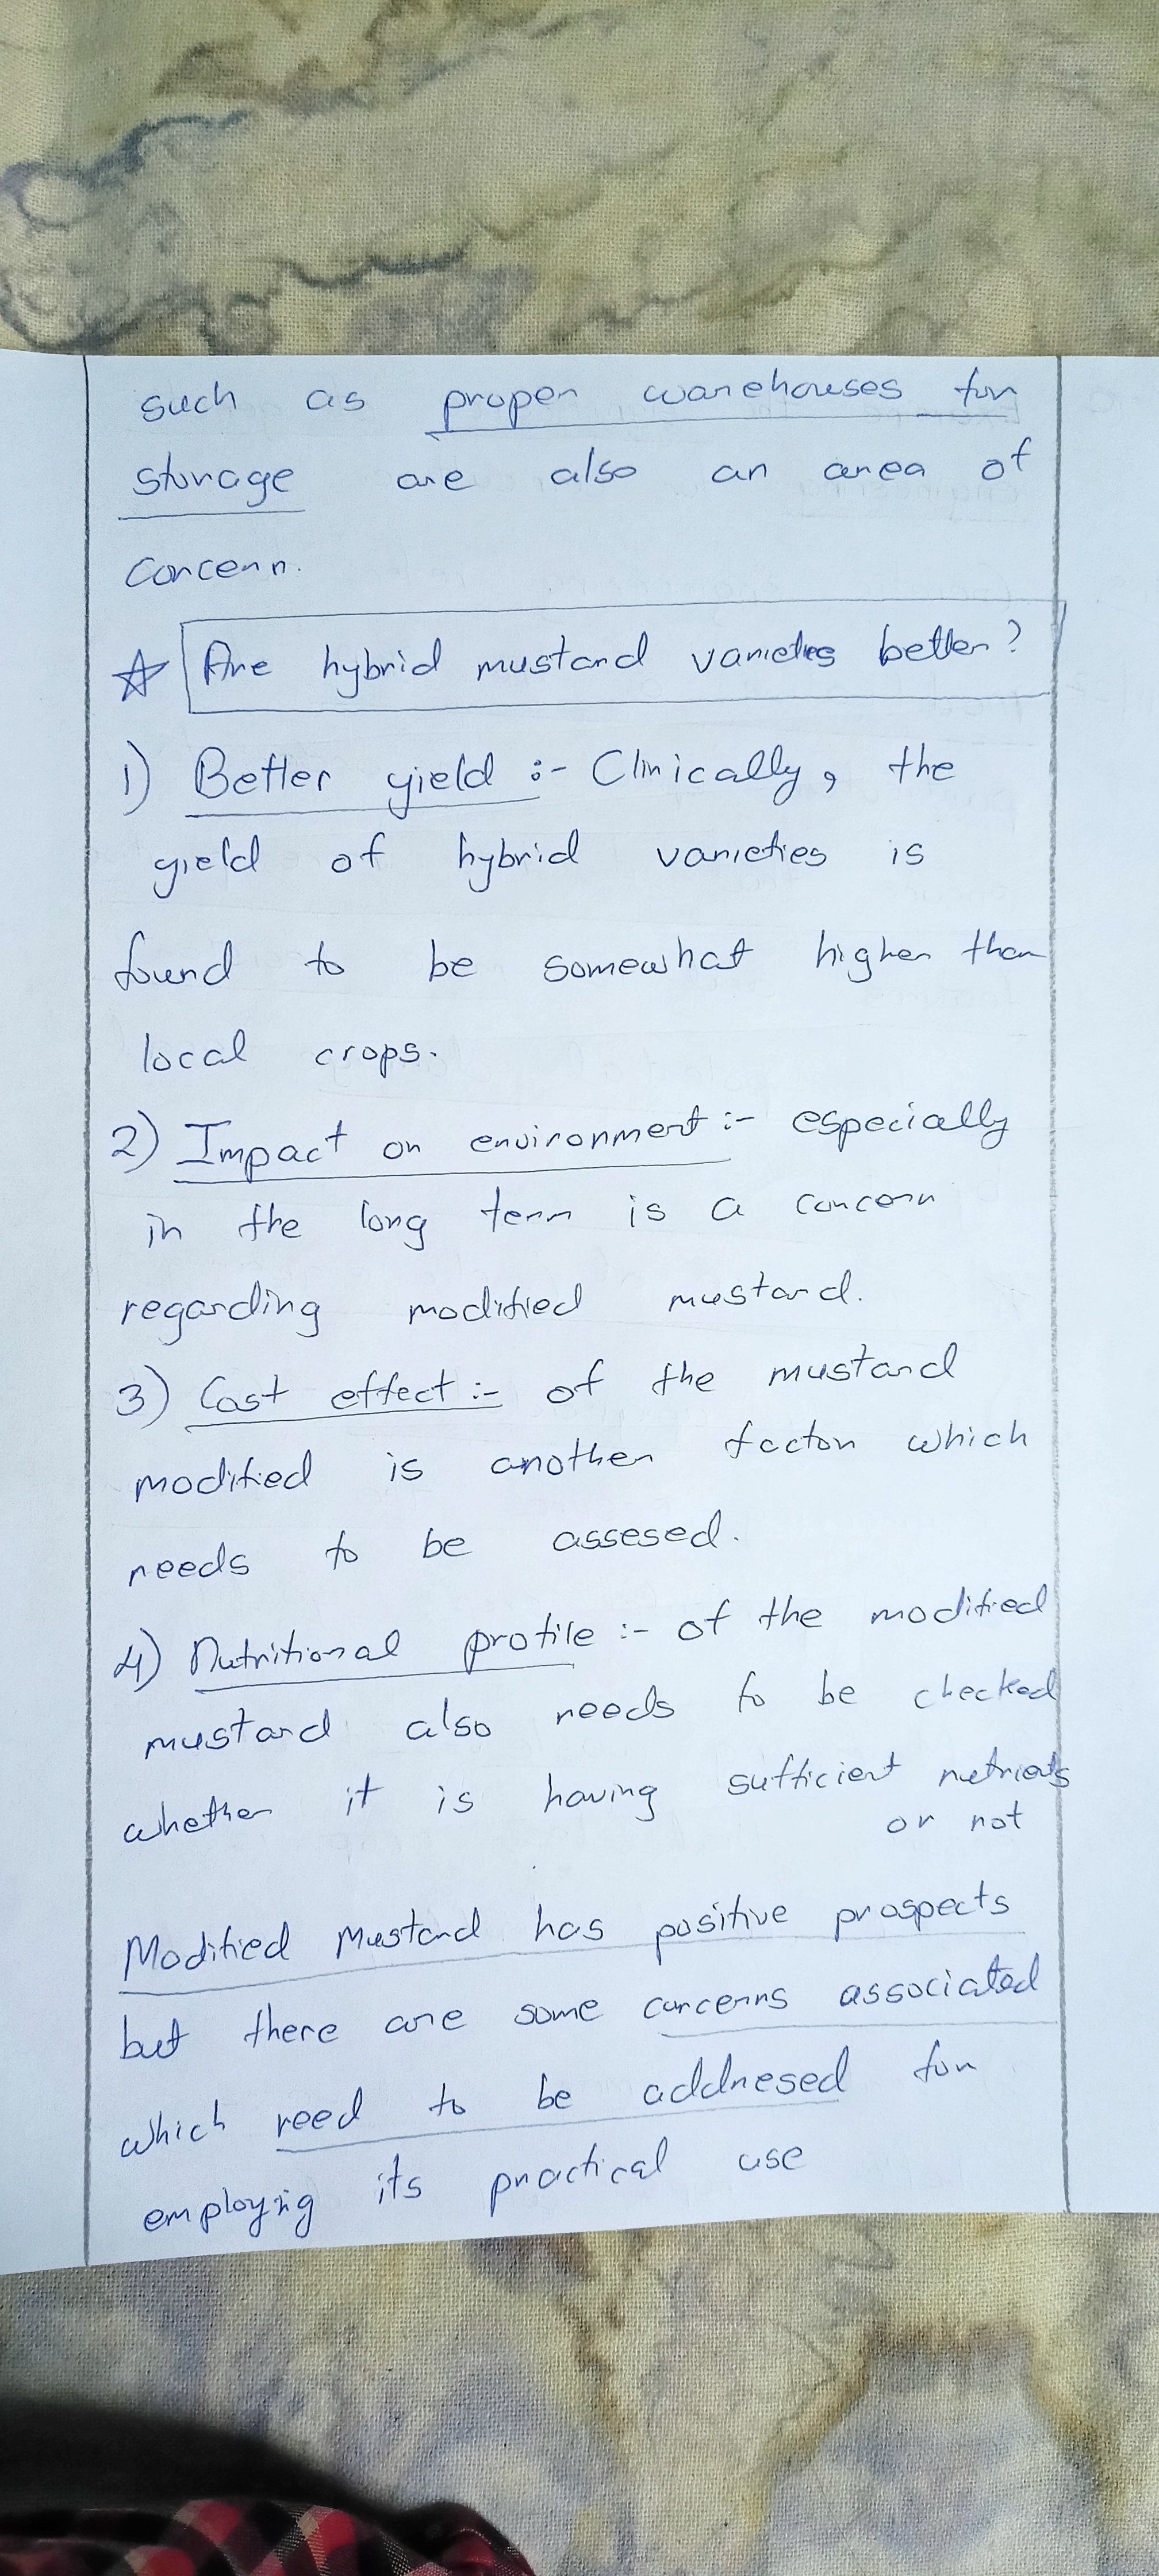 such as proper warehouses for
storage are also an area of
concern.
☆ Are hybrid mustard varieties better?
1) Better yield :- Clinically, the
yield of hybrid varieties is
found to be somewhat higher than
local crops.
2) Impact on environment :- especially
in the long term is a concern
regarding modified mustard.
3) Cost effect :- of the mustard
modified is another factor which
needs to be assesed.
4) Nutritional profile :- of the modified
mustard also needs to be checked
whether it is having sufficient nutrients
or not
Modified Mustard has positive prospects
but there are some concerns associated
which need to be addresed for
employing its practical use